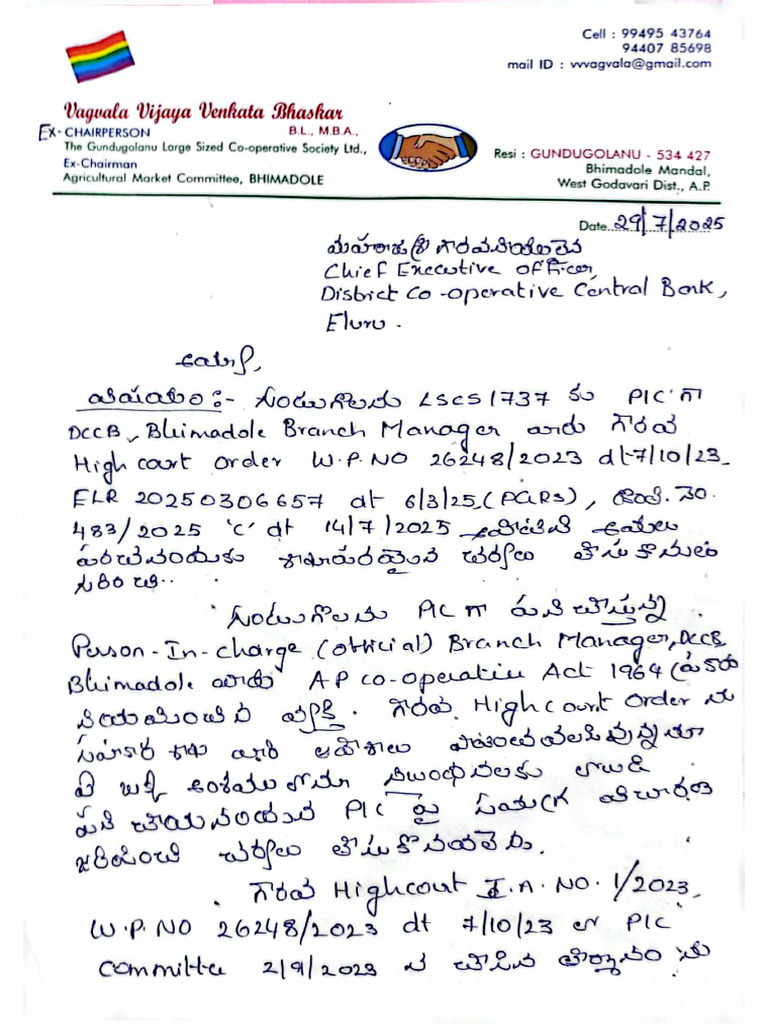 Cell : 99495 43764
94407 85698
mail ID : vvvagvala@gmail.com
Vagvala Vijaya Venkata Bhaskar
B.L., M.B.A.,
Ex-CHAIRPERSON
The Gundugolanu Large Sized Co-operative Society Ltd.,
Ex-Chairman
Agricultural Market Committee, BHIMADOLE
Resi : GUNDUGOLANU - 534 427
Bhimadole Mandal,
West Godavari Dist., A.P.
Date..29/7/2025
మహారాజశ్రీ గౌరవనీయులైన
Chief Executive officer,
District Co-operative Central Bank,
Eluru.
ఆర్యా,
విషయం :- గుండుగొలను LSCS 1737 కు PIC గా
DCCB, Bhimadole Branch Manager వారు గౌరవ
High court order W.P.NO 26248/2023 dt-7/10/23
ELR 20250306657 dt 6/3/25 (PGRS),
483/2025 'C' dt 14/7/2025 అమలు
పరచనందుకు శాఖాపరమైన చర్యలు తీసుకొనుట
గురించి..
గుండుగొలను PIC గా పని చేస్తున్న
Person-In-charge (official) Branch Manager, DCCB
Bhimadole వారు A P co-operative Act 1964
నియమించిన వ్యక్తి. గౌరవ High court Order ను
సహకార శాఖ వారి ఆదేశాలు
ఏ ఒక్క అంశములోను నిబంధనలకు లోబడి
పని చేయనందున PIC పై సమగ్ర విచారణ
జరిపించి చర్యలు తీసుకొనవలెను.
గౌరవ Highcourt I.A.NO.1/2023
W.P.NO 26248/2023 dt 7/10/23 PIC
committee 2/9/2023 న చేసిన తీర్మానం ను